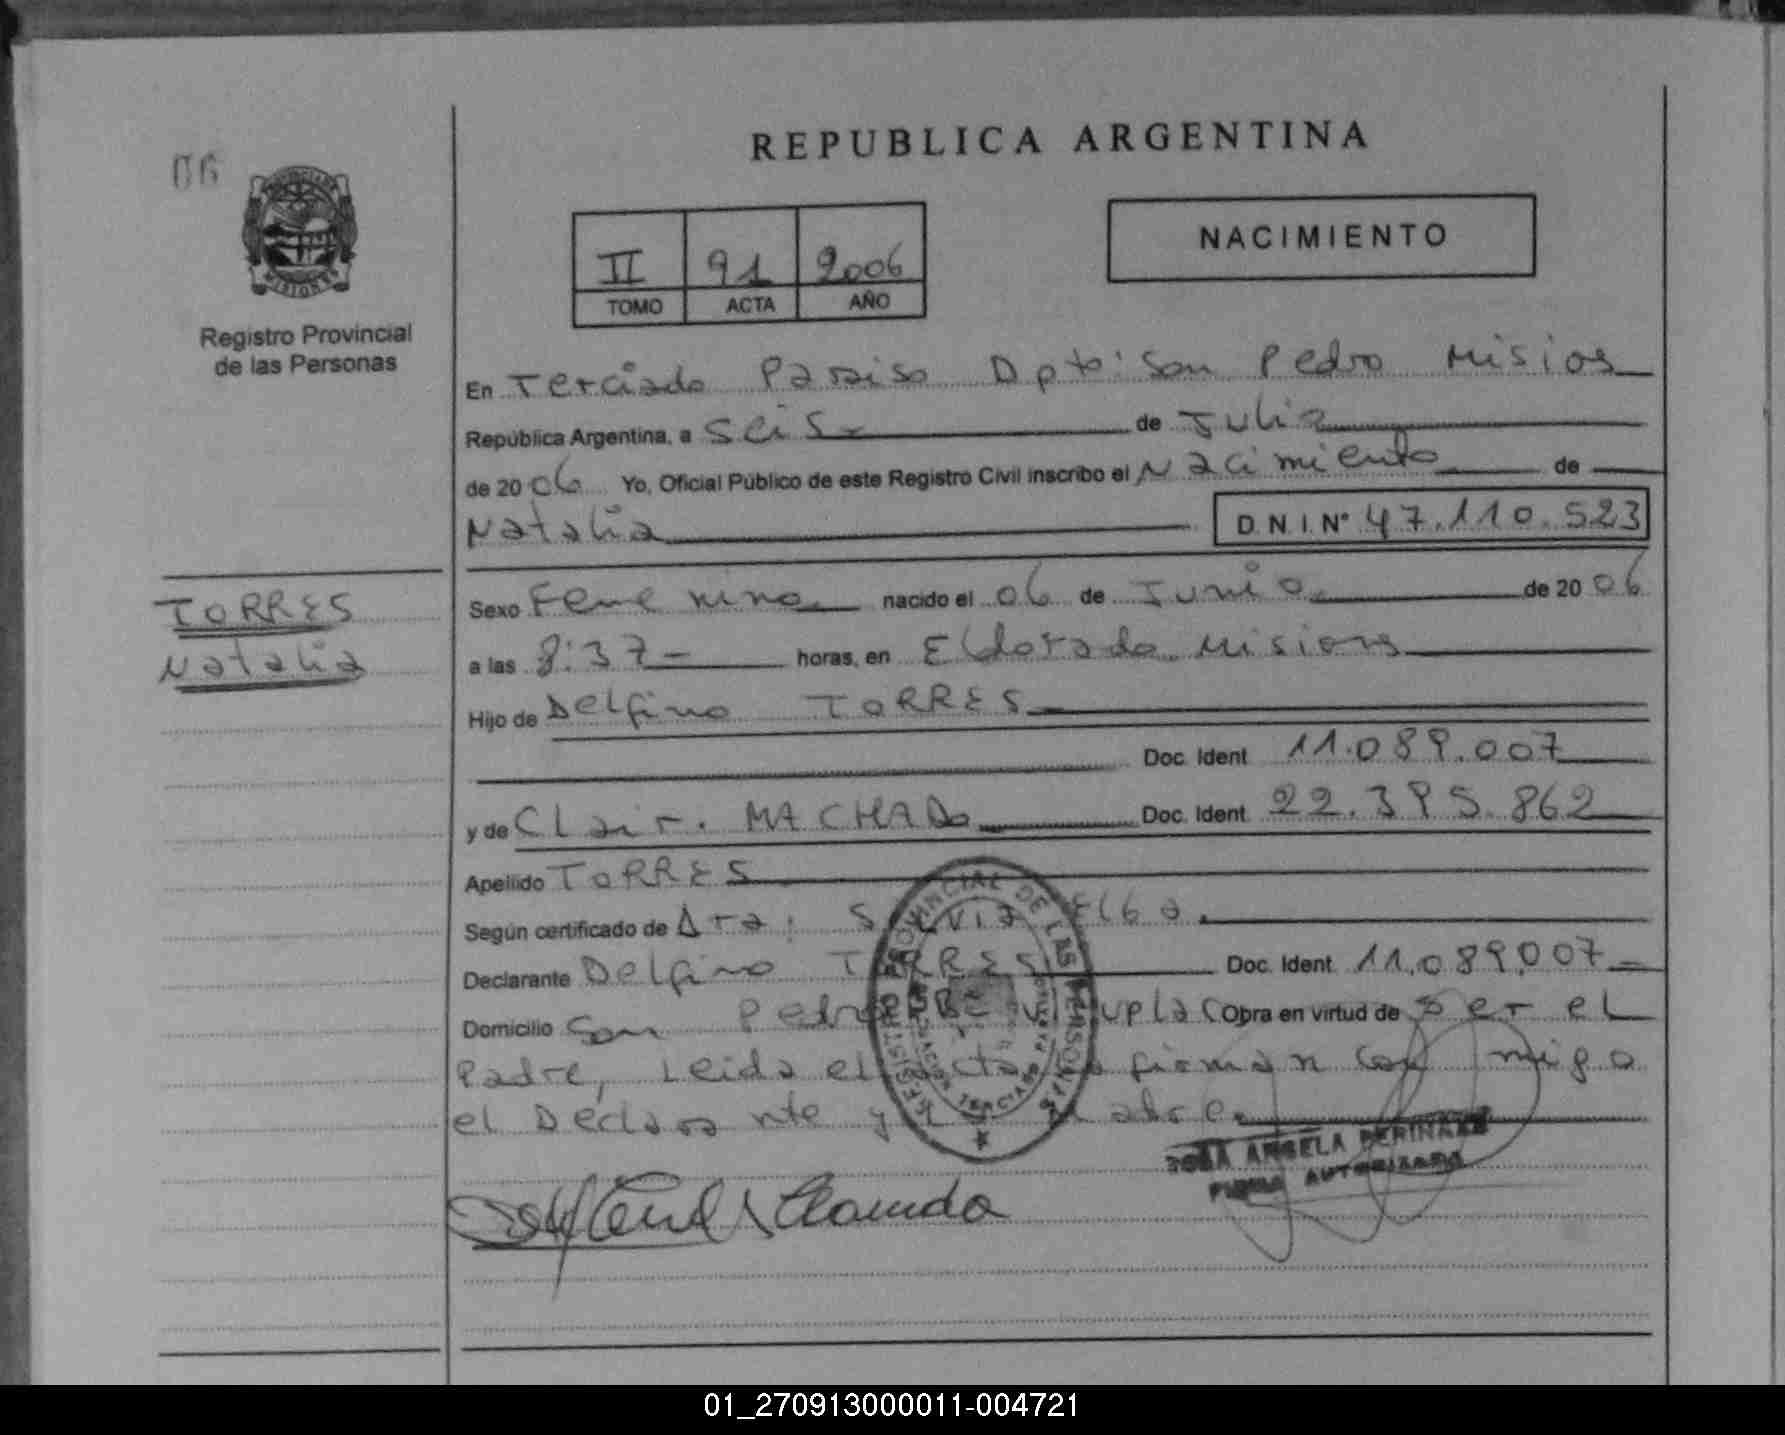 REPUBLICA ARGENTINA
06
PROVINCIA DE
MISIONES
Registro Provincial
de las Personas
II 91 2006
TOMO ACTA AÑO
NACIMIENTO
En Terciado Paraiso Dpto: San Pedro Misios
República Argentina, a seis de Julio
de 20 06 Yo, Oficial Público de este Registro Civil inscribo el Nacimiento de
Natalia D.N.I. N° 47.110.523
TORRES
Natalia
Sexo Femenino nacido el 06 de Junio de 20 06
a las 8:37 - horas, en Eldorado Misions
Hijo de Delfino TORRES
Doc. Ident 11.089.007
y de Clair. MACHADO Doc. Ident. 22.395.862
Apellido TORRES
Según certificado de Dra: Silvia Elba.
Declarante Delfino TORRES Doc. Ident. 11.089.007
Domicilio San Pedro Obra en virtud de ser el
Padre, Leida el acta firman con migo
el Declarante y la Madre.
REGISTRO PROVINCIAL DE LAS PERSONAS
TERCIADO
ANGELA
FIRMA AUTORIZADA
01_270913000011-004721